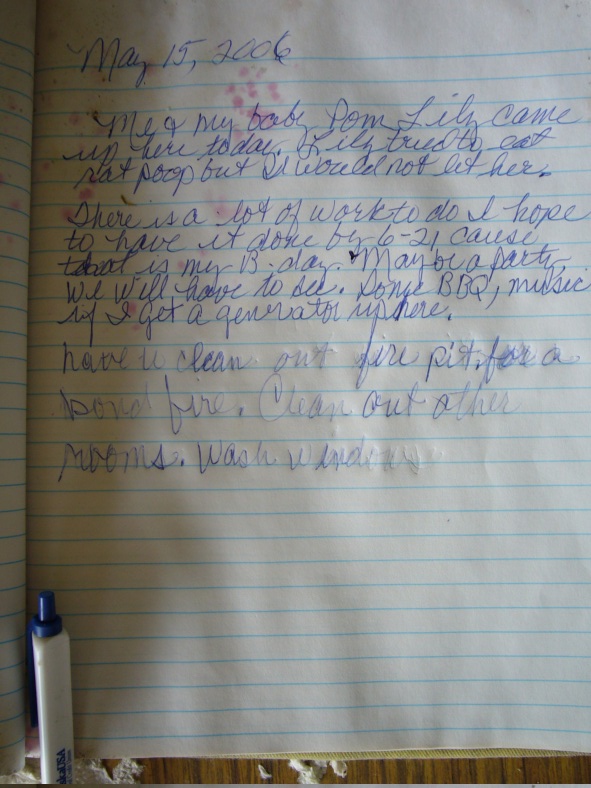 May 15, 2006
Me & my baby Pom Lily came
up here today. Lily tried to eat
rat poop but I would not let her.
There is a lot of work to do I hope
to have it done by 6-21 cause
that is my B-day. Maybe a party,
we will have to see. Some BBQ, music
if I get a generator up here.
have to clean out fire pit for a
bond fire. Clean out other
rooms. Wash windows
USA